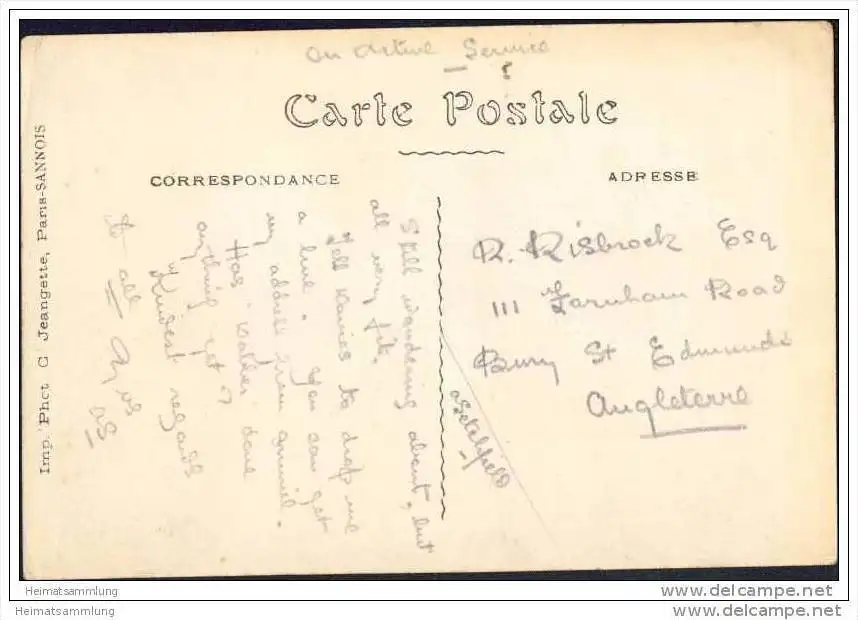 On Active Service
Carte Postale
CORRESPONDANCE
ADRESSE
Still wandering about, but
all very fit.
Tell to drop me
a line. You can get
my address from
Has done
anything yet?
Kindest regards
to all
R. Risbrock Esq
111 Farnham Road
Bury St Edmunds
Angleterre
Imp. Phot C Jeangette, Paris-SANNOIS
Heimatsammlung
Heimatsammlung
www.delcampe.net
www.delcampe.net